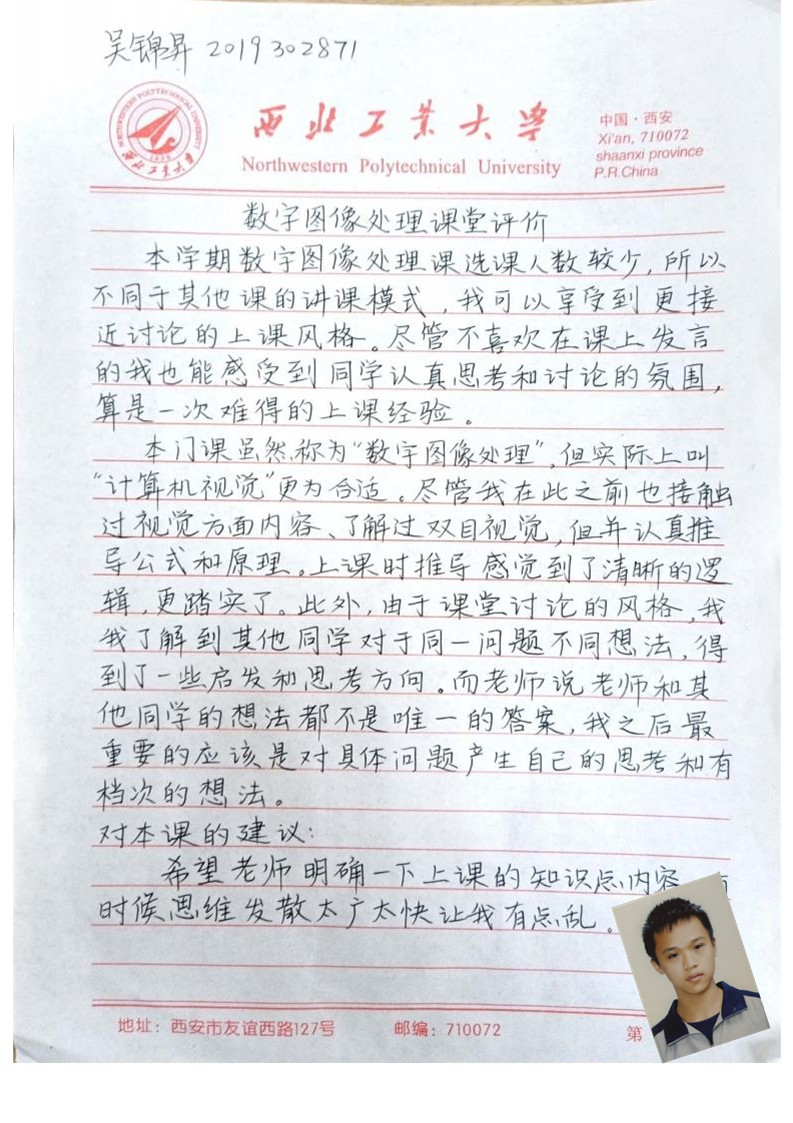 吴锦昇 2019302871
NORTHWESTERN POLYTECHNICAL UNIVERSITY
西北工业大学
1938
西北工业大学
Northwestern Polytechnical University
中国·西安
Xi'an, 710072
shaanxi province
P.R.China
数字图像处理课堂评价
本学期数字图像处理课选课人数较少,所以
不同于其他课的讲课模式,我可以享受到更接
近讨论的上课风格。尽管不喜欢在课上发言
的我也能感受到同学认真思考和讨论的氛围,
算是一次难得的上课经验。
本门课虽然称为“数字图像处理”,但实际上叫
“计算机视觉”更为合适。尽管我在此之前也接触
过视觉方面内容、了解过双目视觉,但并认真推
导公式和原理。上课时推导感觉到了清晰的逻
辑,更踏实了。此外,由于课堂讨论的风格,我
我了解到其他同学对于同一问题不同想法,得
到了一些启发和思考方向。而老师说老师和其
他同学的想法都不是唯一的答案,我之后最
重要的应该是对具体问题产生自己的思考和有
档次的想法。
对本课的建议:
希望老师明确一下上课的知识点内容
时候思维发散太广太快让我有点乱。
地址:西安市友谊西路127号 邮编:710072 第